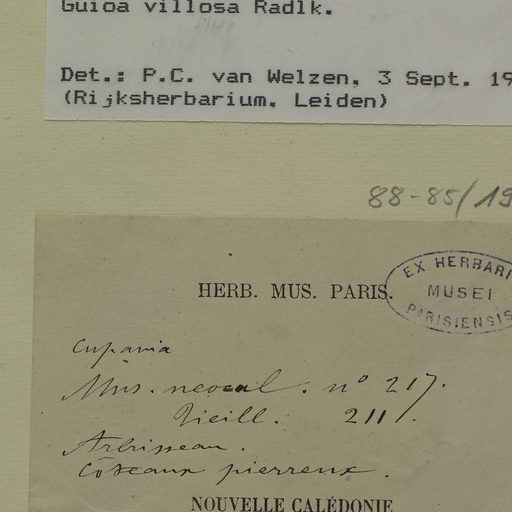 Guioa villosa Radlk.
Det.: P.C. van Welzen, 3 Sept. 19
(Rijksherbarium, Leiden)
88-85/19
EX HERBARI
MUSEI
PARISIENSIS
HERB. MUS. PARIS.
Cupania
Mus. neocal. n° 217.
Vieill. 211.
Arbrisseau.
Côteaux pierreux.
NOUVELLE CALÉDONIE